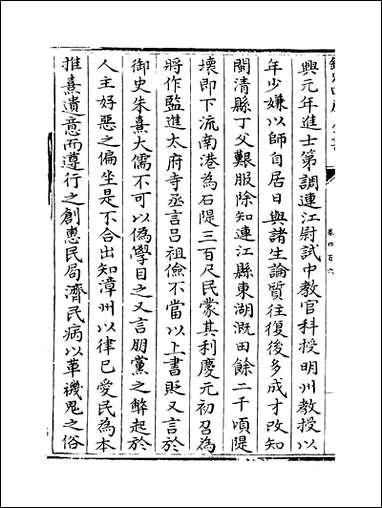 興元年進士第調連江尉試中教官科授明州教授以
年少嫌以師自居日與諸生論質往復後多成才改知
閩清縣丁父艱服除知連江縣東湖溉田餘二千頃隄
壞即下流南港為石隄三百尺民蒙其利慶元初召為
將作監進太府寺丞言呂祖儉不當以上書貶又言於
御史朱熹大儒不可以偽學目之又言朋黨之敝起於
人主好惡之偏坐是不合出知漳州以律己愛民為本
推熹遺意而遵行之創惠民局濟民病以革禨鬼之俗